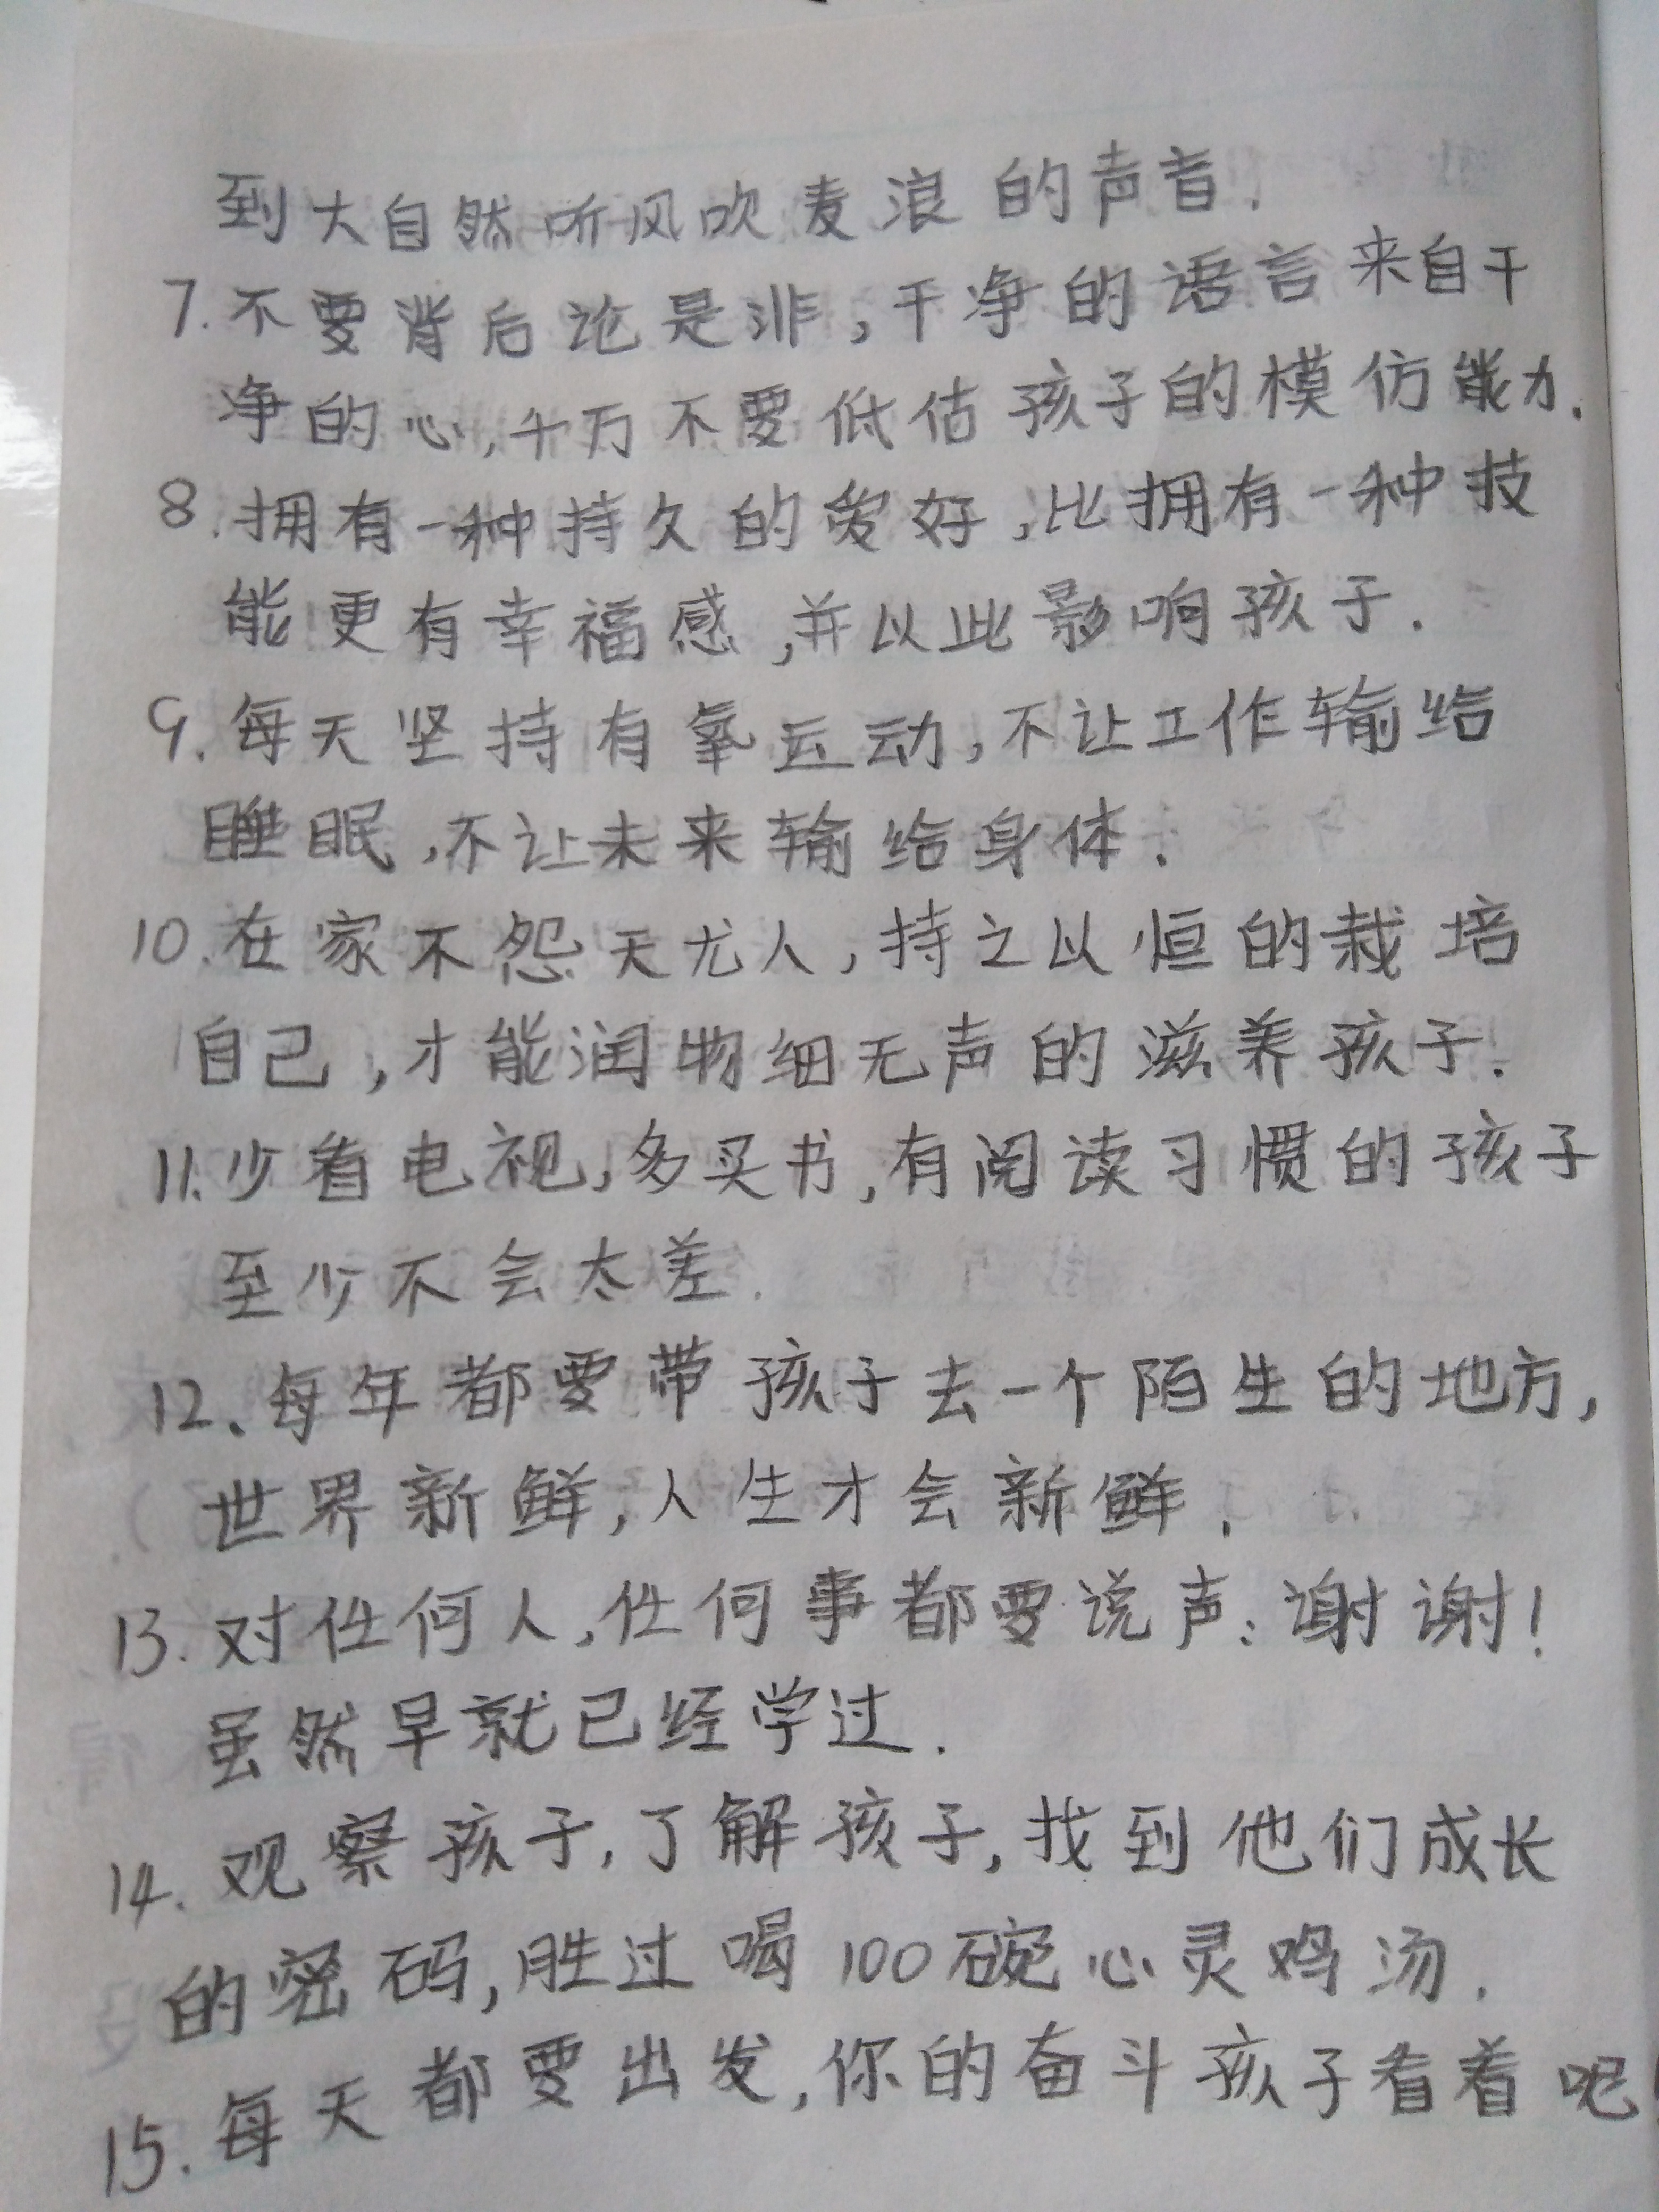 到大自然听风吹麦浪的声音.
7.不要背后论是非,干净的语言来自干
净的心,千万不要低估孩子的模仿能力.
8.拥有一种持久的爱好,比拥有一种技
能更有幸福感,并以此影响孩子.
9.每天坚持有氧运动,不让工作输给
睡眠,不让未来输给身体.
10.在家不怨天尤人,持之以恒的栽培
自己,才能润物细无声的滋养孩子.
11.少看电视,多买书,有阅读习惯的孩子
至少不会太差.
12、每年都要带孩子去一个陌生的地方,
世界新鲜,人生才会新鲜.
13.对任何人,任何事都要说声:谢谢!
虽然早就已经学过.
14.观察孩子,了解孩子,找到他们成长
的密码,胜过喝100碗心灵鸡汤.
15.每天都要出发,你的奋斗孩子看着呢